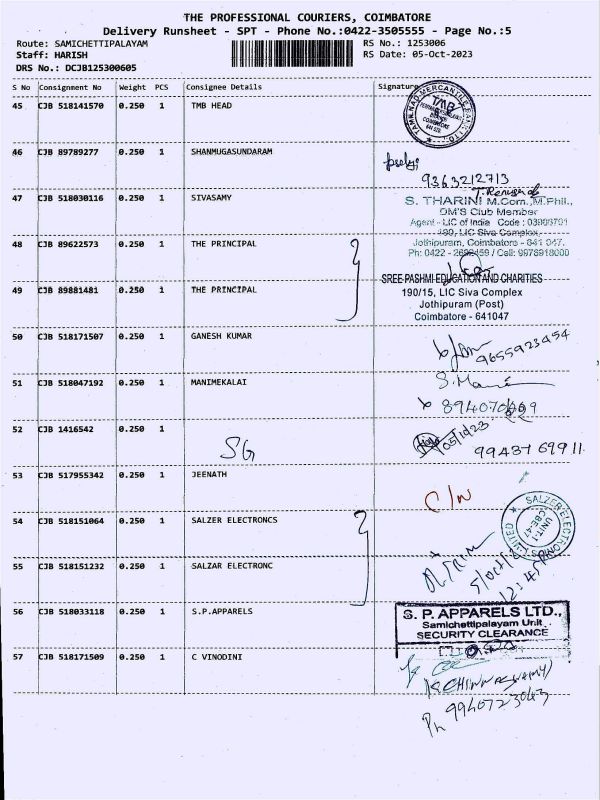 THE PROFESSIONAL COURIERS, COIMBATORE
Delivery Runsheet - SPT - Phone No.:0422-3505555 - Page No.:5
Route: SAMICHETTIPALAYAM RS No.: 1253006
Staff: HARISH RS Date: 05-Oct-2023
DRS No.: DCJB125300605
S No Consignment No Weight PCS Consignee Details Signature
45 CJB 518141570 0.250 1 TMB HEAD
TAMILNAD MERCANTILE BANK LTD.
TMB
COIMBATORE
46 CJB 89789277 0.250 1 SHANMUGASUNDARAM
9363212713
47 CJB 518030116 0.250 1 SIVASAMY
S. THARINI M.Com.,M.Phil.,
DM'S Club Member
Agent - LIC of India Code : 03909791
190, LIC Siva Complex,
48 CJB 89622573 0.250 1 THE PRINCIPAL
Jothipuram, Coimbatore - 641 047.
Ph: 0422 - 2692459 / Cell: 9976918000
SREE PASHMI EDUCATION AND CHARITIES
49 CJB 89881481 0.250 1 THE PRINCIPAL
190/15, LIC Siva Complex
Jothipuram (Post)
Coimbatore - 641047
50 CJB 518171507 0.250 1 GANESH KUMAR
9655923454
51 CJB 518047192 0.250 1 MANIMEKALAI
S. Mani
52 CJB 1416542 0.250 1
SG
05/10/23
99487 69911
53 CJB 517955342 0.250 1 JEENATH
C/N
54 CJB 518151064 0.250 1 SALZER ELECTRONCS
SALZER ELECTRONICS LIMITED
UNIT-1
CBE-47
55 CJB 518151232 0.250 1 SALZAR ELECTRONC
56 CJB 518033118 0.250 1 S.P.APPARELS
S. P. APPARELS LTD.,
Samichettipalayam Unit.
SECURITY CLEARANCE
57 CJB 518171509 0.250 1 C VINODINI
Ph 9940723043